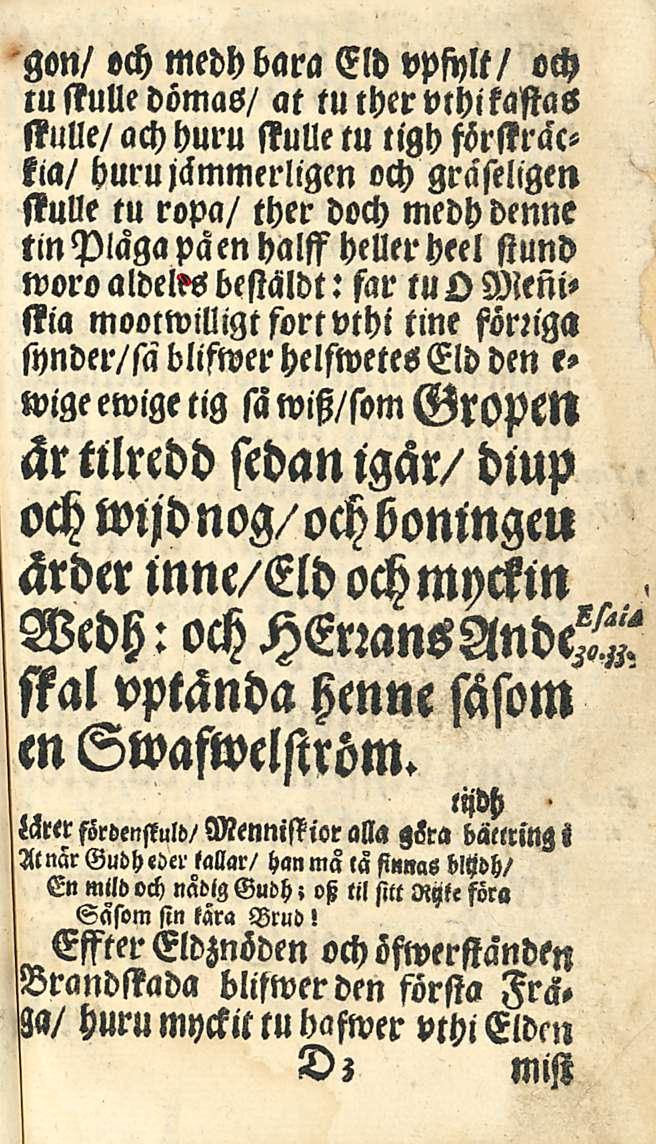 gon/ och medh bara Eld vpfylt/ och
tu skulle dömas/ at tu ther vthi kastas
skulle/ ach huru skulle tu tigh förskräc-
kia/ huru jämmerligen och gräseligen
skulle tu ropa/ ther doch medh denne
tin Plåga på en halff heller heel stund
woro aldeles bestäldt: far tu O Meñi-
skia mootwilligt fort vthi tine förriga
synder/ så blifwer helfwetes Eld den e-
wige ewige tig så wiß/ som Gropen
är tilredd sedan igår/ diup
och wijd nog/ och boningen
är der inne/ Eld och myckin
Wedh: och HErrans Ande
Esaiæ
30.33.
skal vptända henne såsom
en Swafwelström.
tijdh
Lärer fördenskuld/ Menniskior alla göra bättring i
At når Gudh eder kallar/ han må tå finnas blijdh/
En mild och nådig Gudh; oß til sitt Rijke föra
Såsom sin kåra Brud!
Effter Eldznöden och öfwerstånden
Brandskada blifwer den första Frå-
ga/ huru myckit tu hafwer vthi Elden
D 3 mist